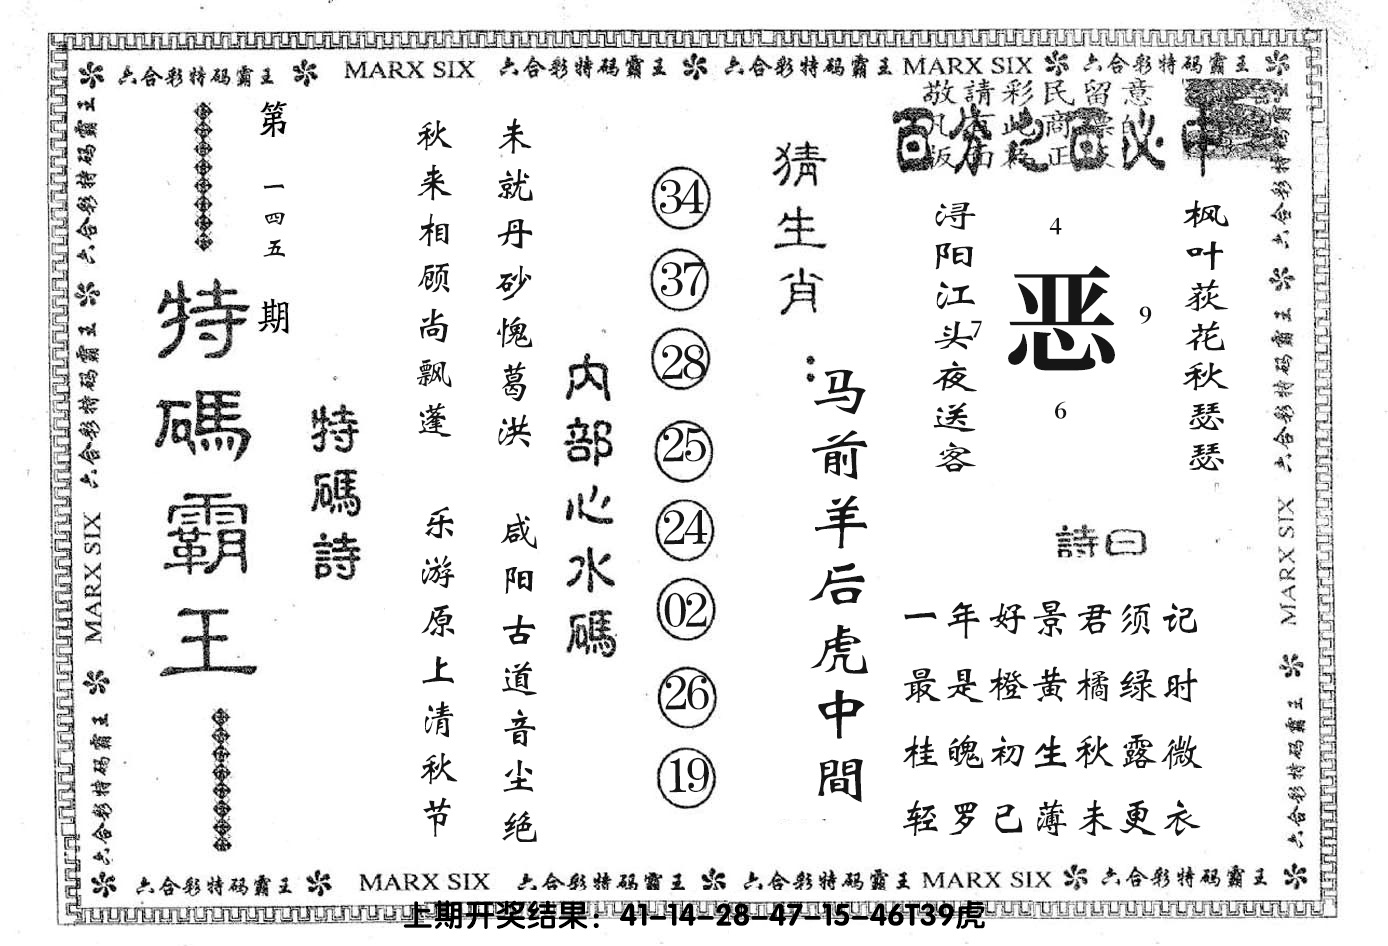 六合彩特码霸王 MARX SIX 六合彩特码霸王 六合彩特码霸王 MARX SIX 六合彩特码霸王
敬請彩民留意
百分之百必中
第一四五期
特碼霸王
特碼詩
秋来相顾尚飘蓬
未就丹砂愧葛洪
乐游原上清秋节
咸阳古道音尘绝
内部心水碼
34
37
28
25
24
02
26
19
猜生肖:
马前羊后虎中間
浔阳江头夜送客
枫叶荻花秋瑟瑟
4
7 恶 9
6
詩曰
一年好景君须记
最是橙黄橘绿时
桂魄初生秋露微
轻罗已薄未更衣
六合彩特码霸王 六合彩特码霸王 MARX SIX 六合彩特码霸王
六合彩特码霸王 六合彩特码霸王 MARX SIX 六合彩特码霸王
六合彩特码霸王 MARX SIX 六合彩特码霸王 六合彩特码霸王 MARX SIX 六合彩特码霸王
上期开奖结果：41-14-28-47-15-46T39虎